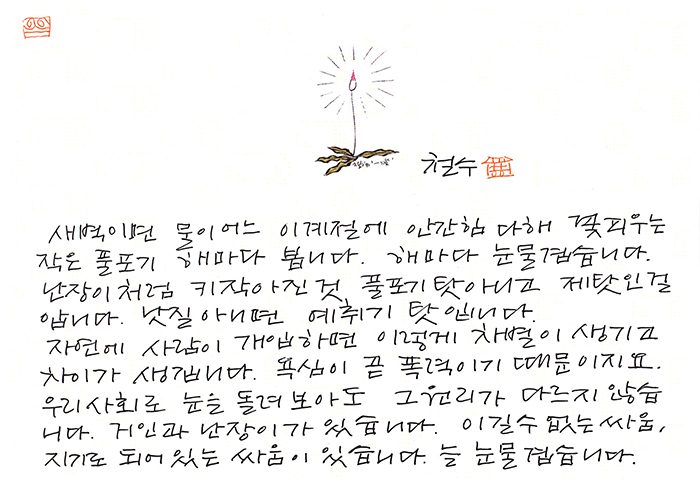 철수
새벽이면 물이 어느 이 계절에 안간힘 다해 꽃피우는
작은 풀포기 해마다 봅니다. 해마다 눈물겹습니다.
난장이처럼 키작아진 것 풀포기 탓 아니고 제탓인걸
압니다. 낫질 아니면 예취기 탓입니다.
자연에 사람이 개입하면 이렇게 차별이 생기고
차이가 생깁니다. 욕심이 곧 폭력이기 때문이지요.
우리사회로 눈을 돌려 보아도 그 원리가 다르지 않습
니다. 거인과 난장이가 있습니다. 이길수 없는 싸움,
지기로 되어있는 싸움이 있습니다. 늘 눈물겹습니다.